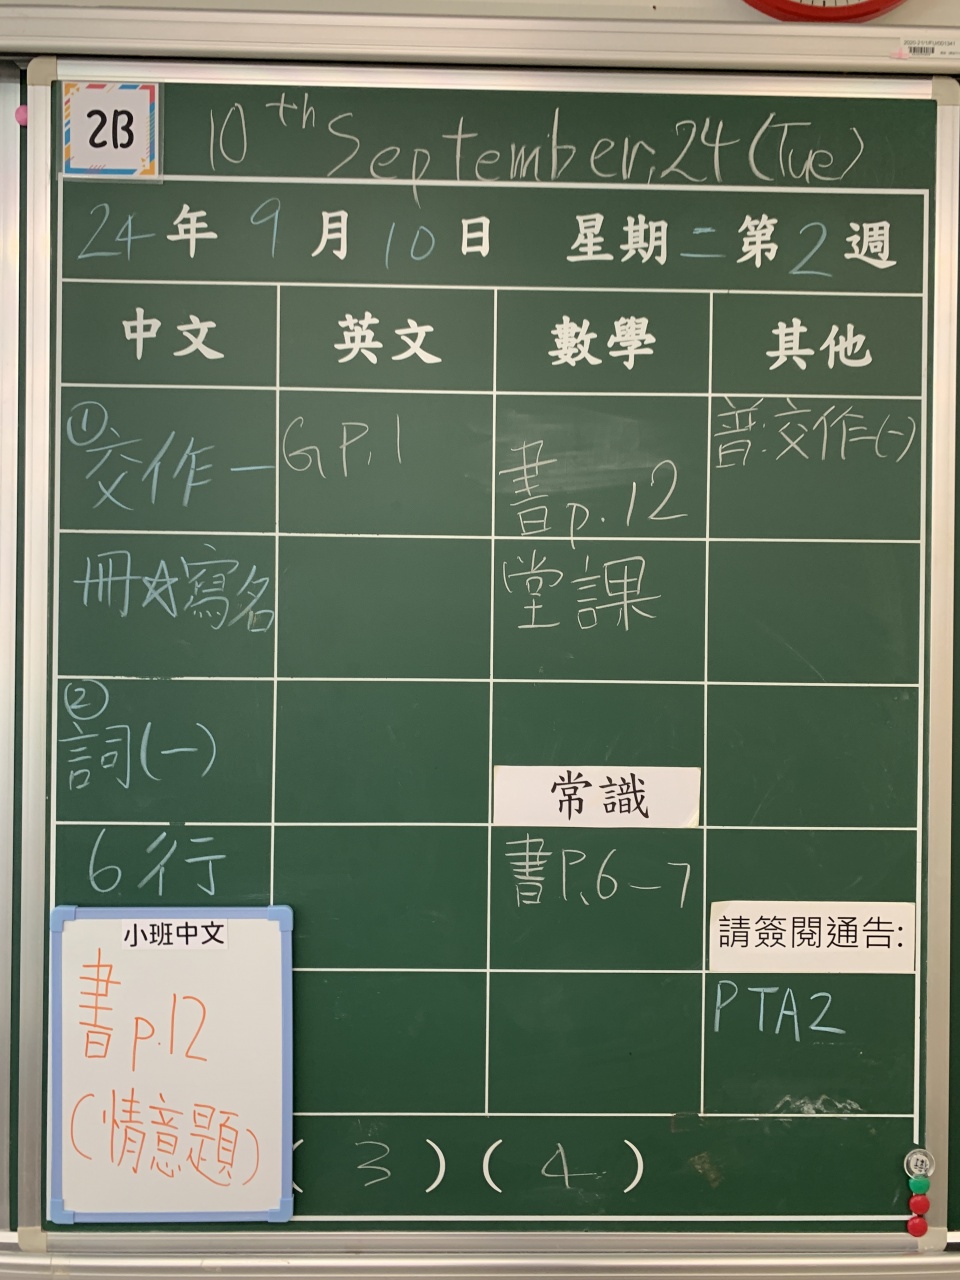 2B
10th September, 24 (Tue)
24年9月10日 星期二 第2週
中文 英文 數學 其他
①交作一
冊☆寫名
②詞(一)
6行
小班中文
書p.12
(情意題)
GP.1
書p.12
堂課
常識
書P.6-7
普:交作(一)
請簽閱通告:
PTA2
(3)(4)